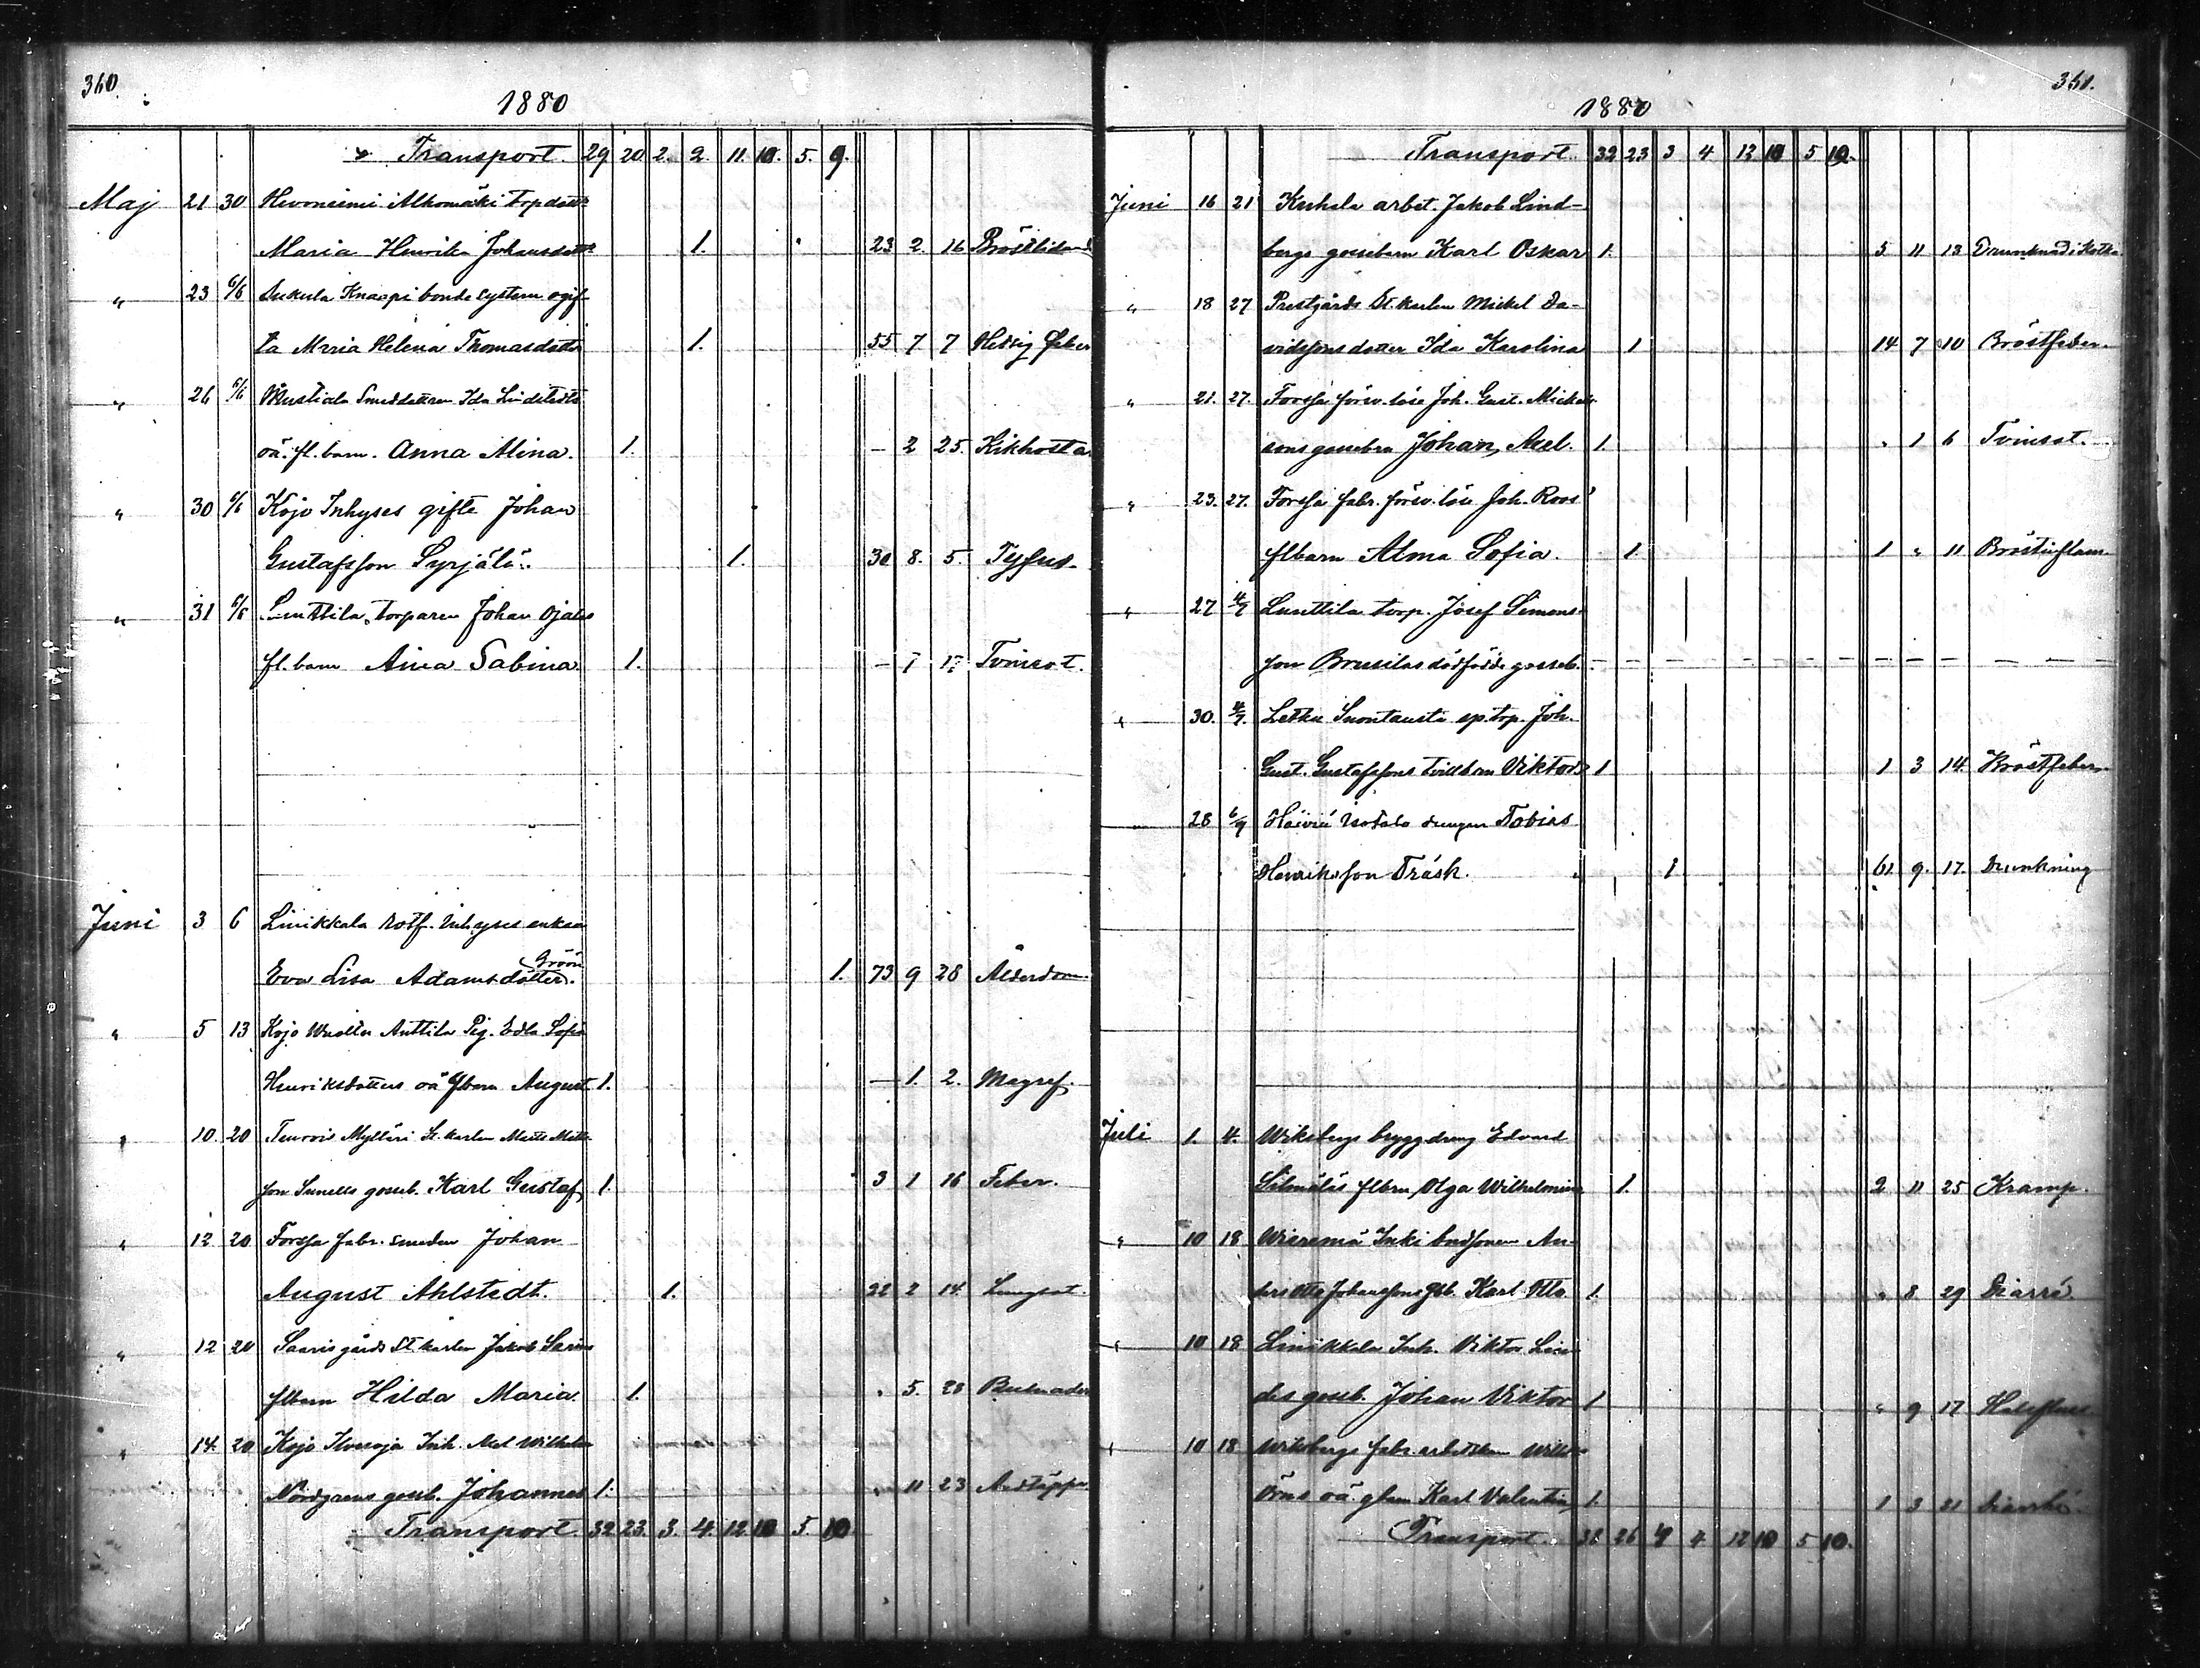 360.
1880
Transport. 29 20. 2. 2. 11. 10. 5. 9.
Maj 21 30 Hevoniemi Alhomäki torpdottr
Maria Henrika Johansdottr 1. 23 2 16 Bröstlidande
" 23 6/6 Sukula Knaapi bonde systern ogif-
ta Maria Helena Thomasdotter 1. 55 7 7 Hetsig feber
" 26 6/6 Mustiala Smeddottren Ida Lindstedts
oä. fl. barn. Anna Alina. 1. – 2 25. Kikhosta
" 30 6/6 Kojo Inhyses gifte Johan
Gustafsson Syrjälä. 1. 30 8. 5. Tyfus.
" 31 6/6 Lunttila torparen Johan Ojalas
fl. barn Aina Sabina 1. – 7 17. Tvinsot.
Juni 3 6 Linikkala rotf. inhyses enkan
Eva Lisa Adamsdotter Gröön. 1. 73 9 28 Ålderdom
" 5 13 Kojo Anttila Pig. Edla Sofia
Henriksdotters oä gbarn August 1. – 1. 2. Magref.
" 10. 20 Tenrois Mylläri St. karlen Matts Matts-
son Sunells gosseb. Karl Gustaf 1. 3 1 16 Feber.
" 12. 20 Forssa fabr. smeden Johan
August Ahlstedt. 1. 22 2 14 Lungsot.
" 12 20 Saaris gårds St. karlen Jakob
flbarn Hilda Maria. 1. " 5. 28
" 14. 20 Kojo Inh. Axel Wilhelm
Nordgrens gosseb. Johannes 1. " 11 23 Andtäppa
Transport. 32 23. 3. 4. 12 10 5 10.
361.
1880
Transport. 32 23 3 4 12 10 5 10.
Juni 16 21 Kuhala arbet. Jakob Lind-
bergs gossebarn Karl Oskar 1. 5 11 13 Drunknad i
" 18 27 Prestgårds St. karlen Mickel Da-
vidssons dotter Ida Karolina 1 14 7 10 Bröstfeber.
" 21. 27. Forssa försv. löse Joh. Gust. Mickels-
sons gossebrn Johan Axel. 1. " 1 6 Tvinsot.
" 23. 27. Forssa fabr. försv. löse Joh. Roos'
flbarn Alma Sofia. 1. 1 " 11 Bröstinflam
" 27 4/7 Lunttila torp. Josef Simons-
son Brusilas dödfödde gosseb. – – – – – – – – – – –
" 30. 4/7. Letku Suontausta sp. torp. Joh.
Gust. Gustafssons tvillbarn Viktor 1 1 3 14. Bröstfeber.
28 6/9 drengen Tobias
Henriksson Träsk. 1 61 9. 17. Drunkning
Juli 1. 4. Wiksbergs byggdreng Edvard
flbrn Olga Wilhelmina 1. 2 11 25 Kramp.
" 10 18 Wieremä Inki bndsonen An-
ders Otto Johanssons gb. Karl Otto 1. " 8 29 Diarré.
" 10 18 Linikkala Inh. Viktor Lin-
des gosseb. Johan Viktor 1 " 9 17
" 10 18 Wiksbergs fabr. arbetskan
oä. gbarn Karl Valentin 1. 1 3 21 Diarrhé.
Transport. 38 26 4 4 12 10 5 10.